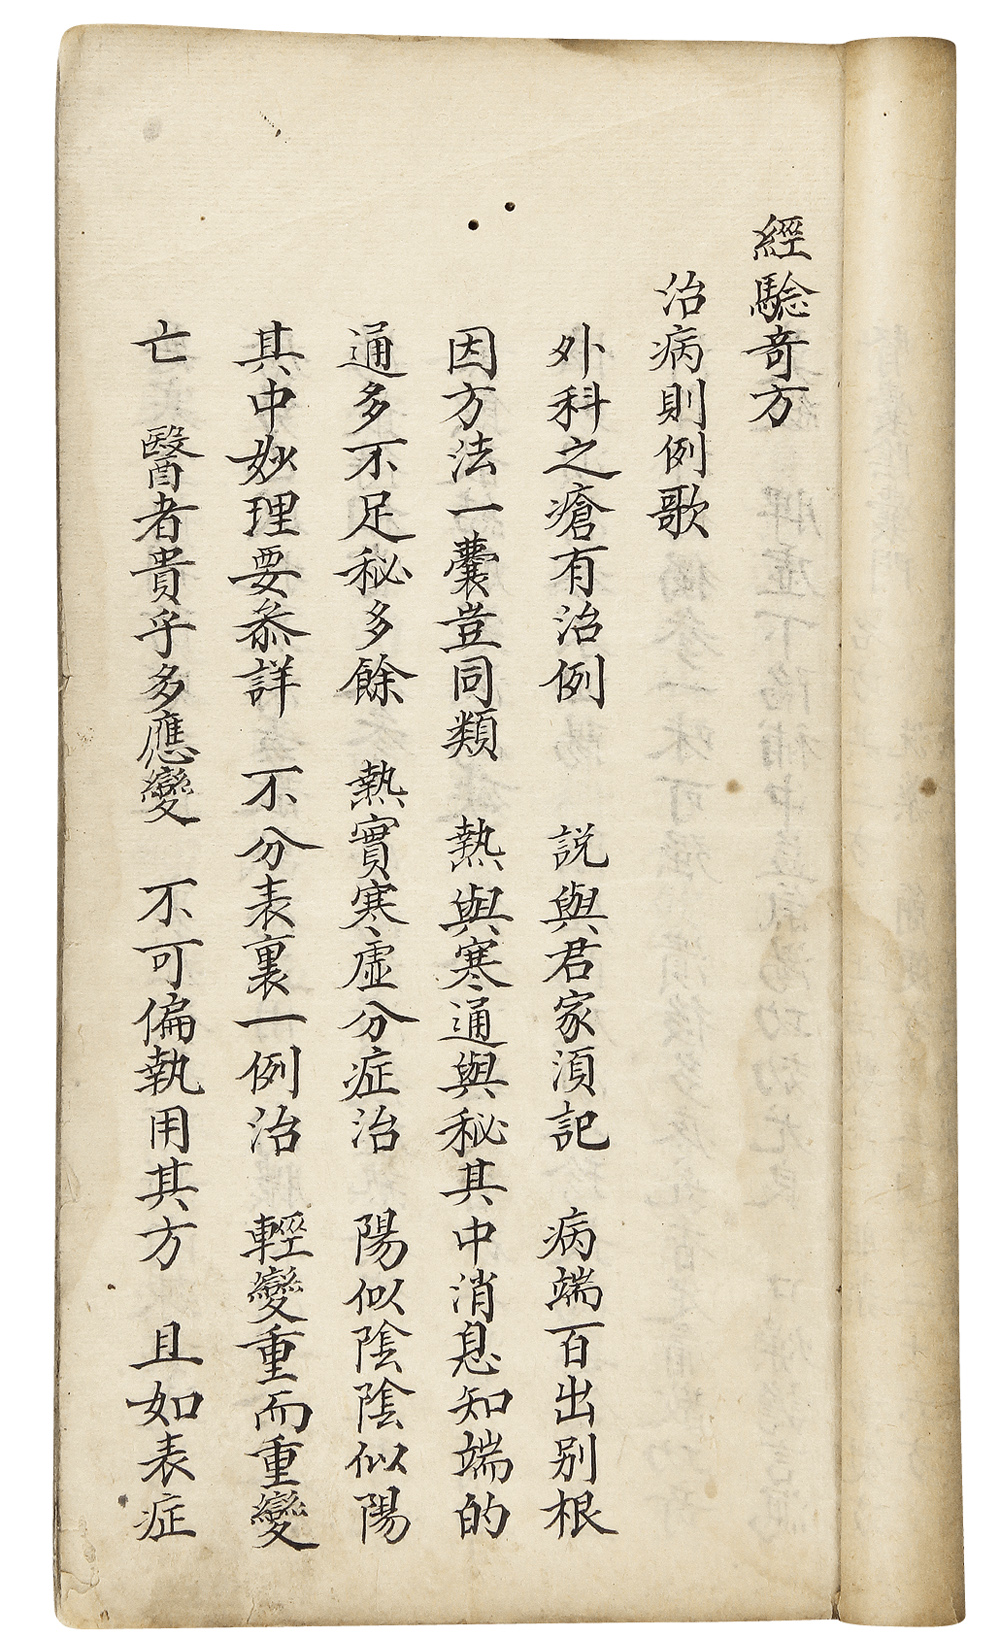 經騐奇方
治病則例歌
外科之瘡有治例　說與君家須記　病端百出別根
因方法一囊豈同類　熱與寒通與秘其中消息知端的
通多不足秘多餘　熱實寒虛分症治　陽似陰陰似陽
其中妙理要叅詳　不分表裏一例治　輕變重而重變
亡　醫者貴乎多應變　不可偏執用其方　且如表症